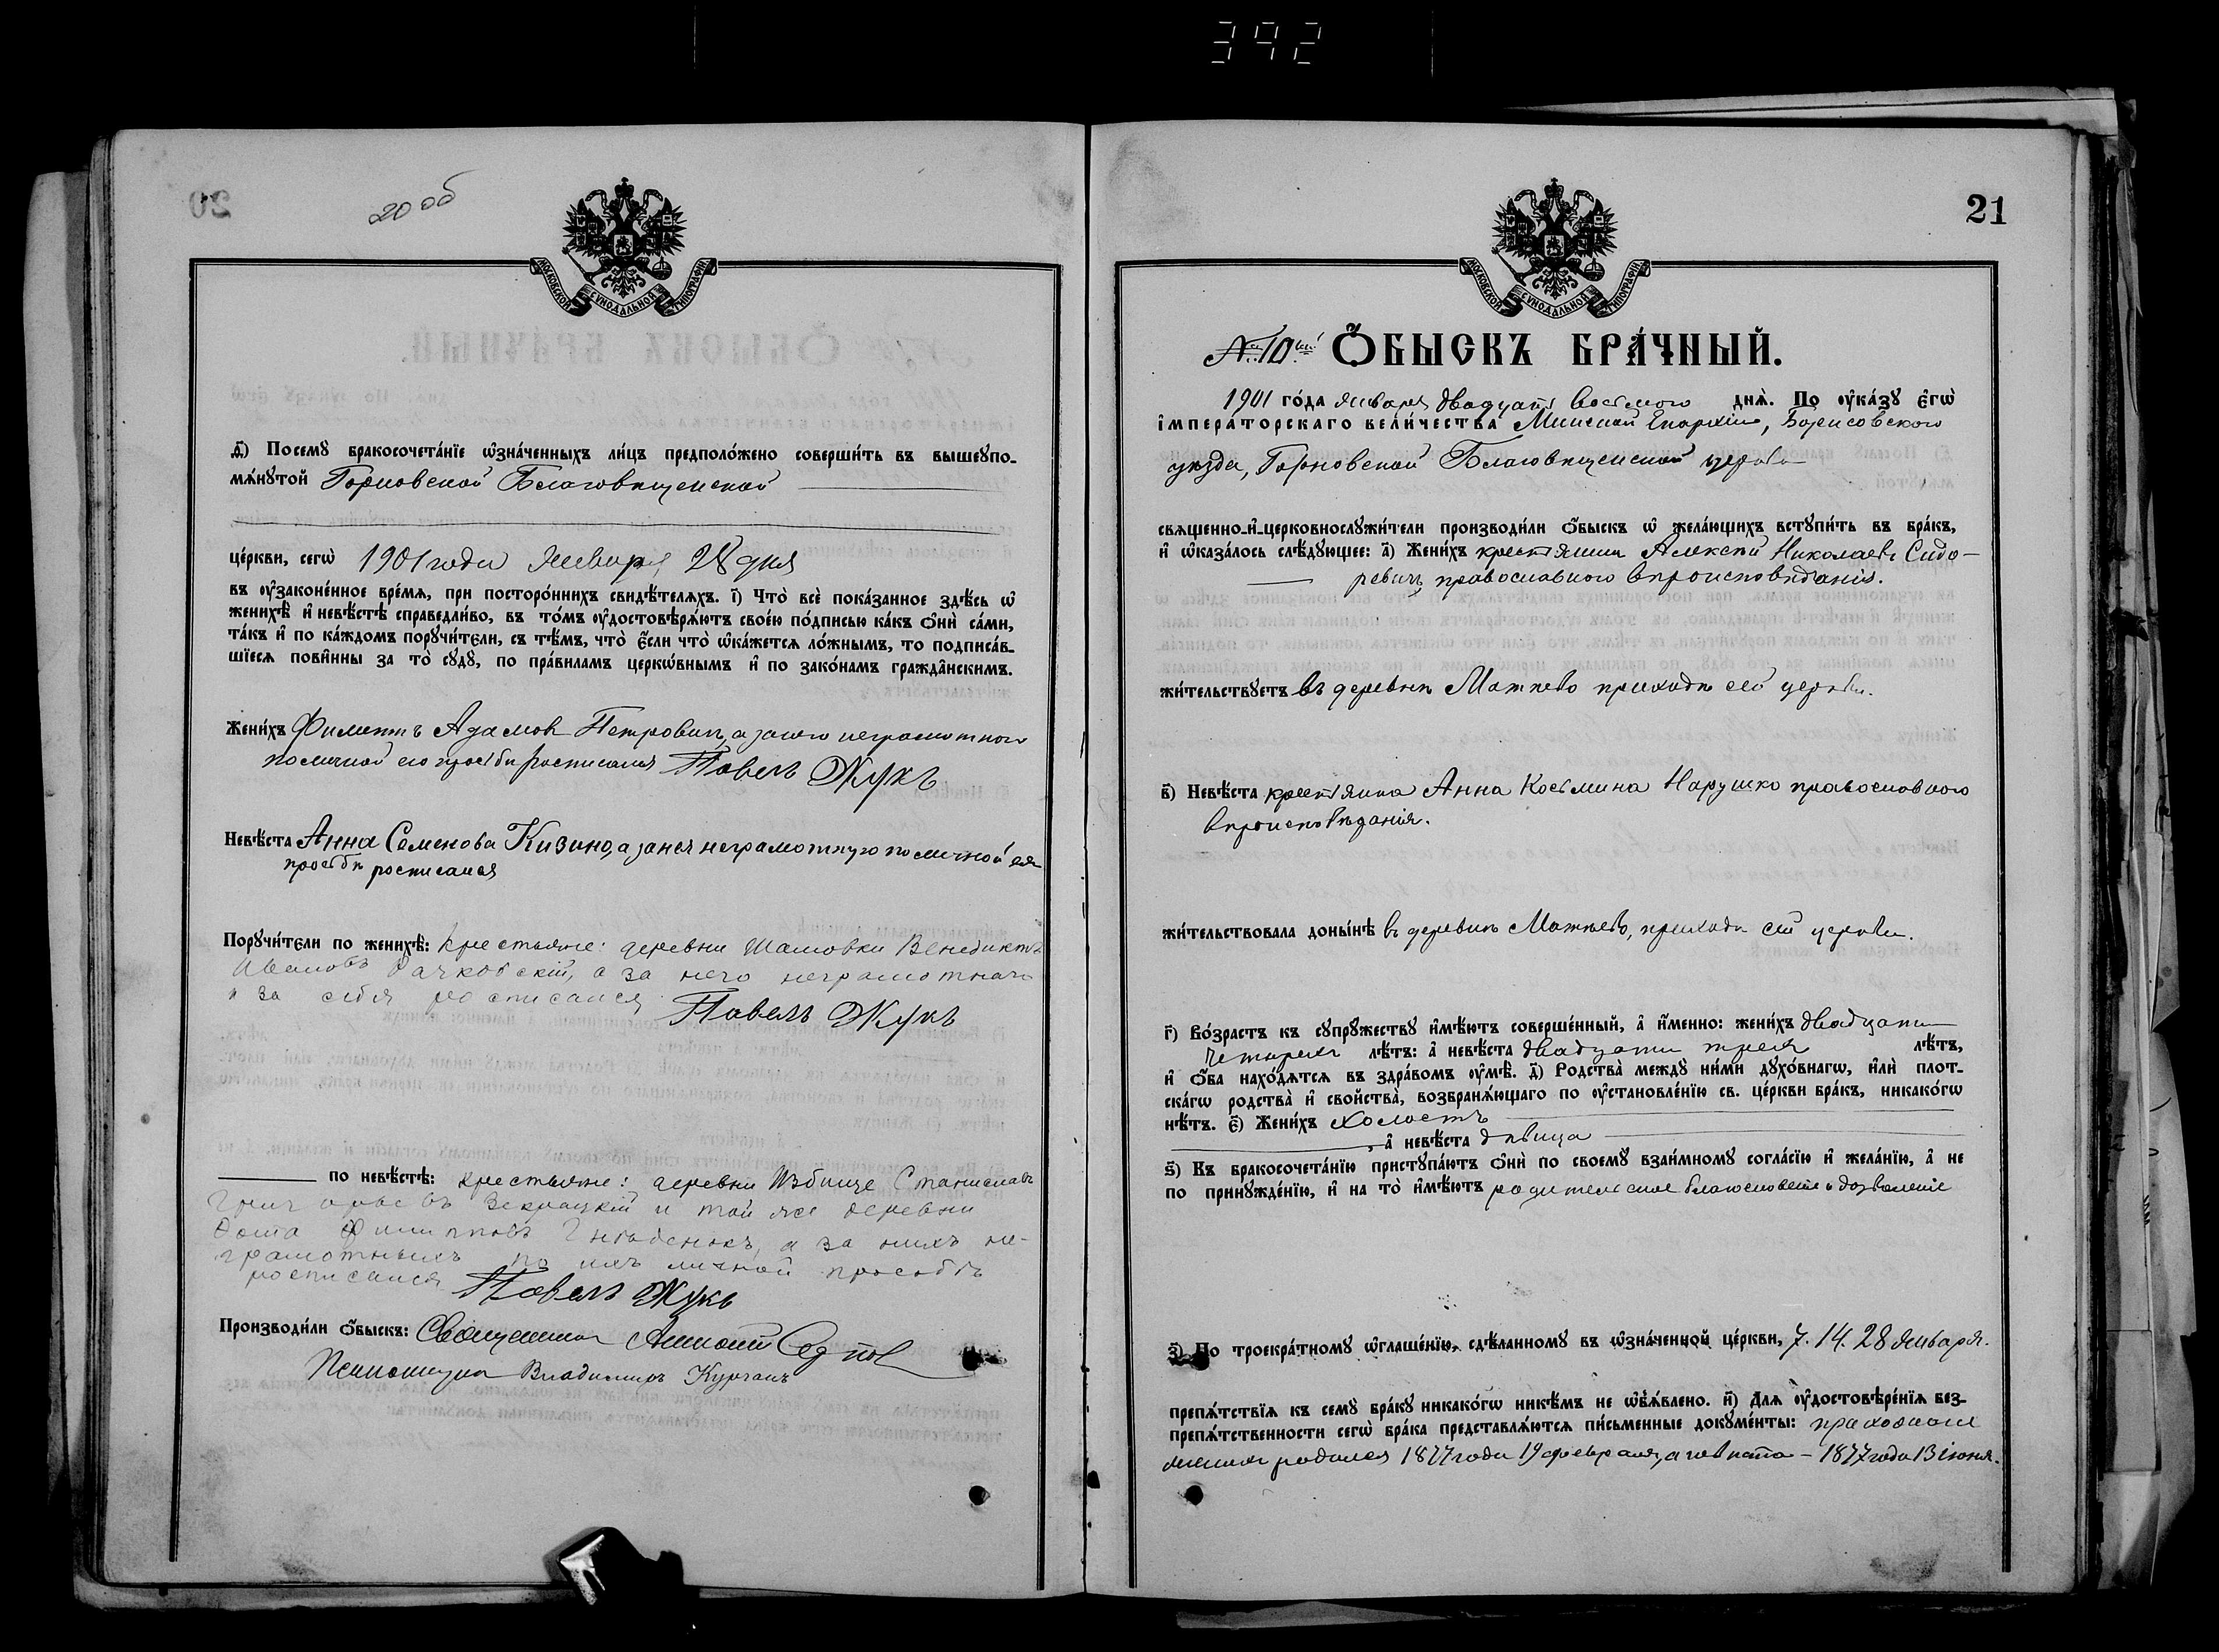 392
20 об
МОСКОВСКОЙ СѴНОДАЛЬНОЙ ТИПОГРАФІИ
д҃) Посемꙋ бракосочета́нїе ѡ҆зна́ченныхъ ли́цъ предполо́жено соверши́ть въ вышеꙋпо-
мѧ́нꙋтой Горновской Благовѣщенской
це́ркви, сегѡ̀ 1901 года Января 28 дня
въ ᲂу҆законе́нное вре́мѧ, при посторо́ннихъ свидѣ́телѧхъ. і҃) Что̀ всѐ пока́занное здѣ́сь ѡ҆
женихѣ̀ и҆ невѣ́стѣ справедли́во, въ то́мъ ᲂу҆достовѣрѧ́ютъ свое́ю по́дписью ка́къ ѻ҆нѝ са́ми,
та́къ и҆ по ка́ждомъ порꙋчи́тели, съ тѣ́мъ, что̀ є҆́сли что̀ ѡ҆ка́жетсѧ ло́жнымъ, то подписа́в-
шїесѧ пови́нны за то̀ сꙋдꙋ̀, по пра́виламъ церкѡ́внымъ и҆ по зако́намъ гражда́нскимъ.
Жени́хъ Филиппъ Адамовъ Петровичъ, а за него неграмотнаго
по личной его просьбѣ росписался Павелъ Жукъ
Невѣ́ста Анна Семенова Кизино, а за нея неграмотную по личной ея
просьбѣ росписался
Порꙋчи́тели по женихѣ̀: крестьяне: деревни Шамовки Венедиктъ
Ивановъ Рачковскій, а за него неграмотнаго
и за себя росписался Павелъ Жукъ
по невѣ́стѣ: крестьяне: деревни Избище Станиславъ
Григорьевъ и той же деревни
Фома Филипповъ а за нихъ не-
грамотныхъ по ихъ личной просьбѣ
росписался Павелъ Жукъ
Производи́ли ѻ҆́быскъ: Священникъ
Псаломщикъ Владимиръ Курганъ
21
МОСКОВСКОЙ СѴНОДАЛЬНОЙ ТИПОГРАФІИ
№ 10ый Ѻ҆́БЫСКЪ БРА́ЧНЫЙ.
1901 го́да января двадцать восьмого днѧ̀. По ᲂу҆ка́зꙋ є҆гѡ̀
і҆мпера́торскаго вели́чества Минской Епархіи, Борисовского
уѣзда, Горновской Благовѣщенской церкви
свѧщенно-и҆-церковнослꙋжи́тели производи́ли ѻ҆́быскъ ѡ҆ жела́ющихъ встꙋпи́ть въ бра́къ,
и҆ ѡ҆каза́лось слѣ́дꙋющее: а҃) Жени́хъ крестьянинъ Алексѣй Николаевъ Сидо-
ревичъ, православного вѣроисповѣданія.
жи́тельствꙋетъ въ деревнѣ Мажнево прихода сей церкви.
в҃) Невѣ́ста крестьянка Анна Косьмина Нарушко православного
вѣроисповѣданія.
жи́тельствовала доны́нѣ въ деревнѣ Мажнево, прихода сей церкви.
г҃) Во́зрастъ къ сꙋпрꙋ́жествꙋ и҆мѣ́ютъ соверше́нный, а҆ и҆́менно: жени́хъ двадцати
четырехъ лѣ́тъ: а҆ невѣ́ста двадцати трехъ лѣ́тъ,
и҆ ѻ҆́ба нахо́дѧтсѧ въ здра́вомъ ᲂу҆мѣ̀. д҃) Родства̀ междꙋ ни́ми дꙋхо́внагѡ, и҆лѝ плот-
ска́гѡ родства̀ и҆ свойства̀, возбранѧ́ющаго по ᲂу҆становле́нїю св. це́ркви бра́къ, никако́гѡ
нѣ́тъ. є҃) Жени́хъ холостъ
, а҆ невѣ́ста дѣвица
ѕ҃) Къ бракосочета́нїю пристꙋпа́ютъ ѻ҆нѝ по своемꙋ̀ взаи́мномꙋ согла́сїю и҆ жела́нїю, а҆ не
по принꙋжде́нїю, и҆ на то̀ и҆мѣ́ютъ родительское благословеніе и дозволеніе
з҃) По троекра́тномꙋ ѡ҆глаше́нїю, сдѣ́ланномꙋ въ ѡ҆зна́ченной це́ркви, 7. 14. 28 Января.
препѧ́тствїѧ къ семꙋ̀ бра́кꙋ никако́гѡ никѣ́мъ не ѡ҆бъѧ́влено. и҃) Длѧ ᲂу҆достовѣре́нїѧ без-
препѧ́тственности сегѡ̀ бра́ка представлѧ́ютсѧ пи́сьменные докꙋме́нты:
женихъ родился 1877 года 19 февраля, а невѣста – 1877 года 13 іюня.